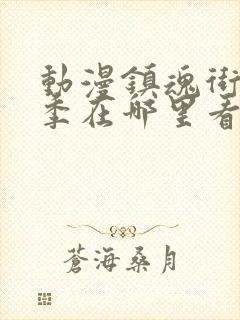 動漫鎮魂街
季在哪里看
蒼海桑月